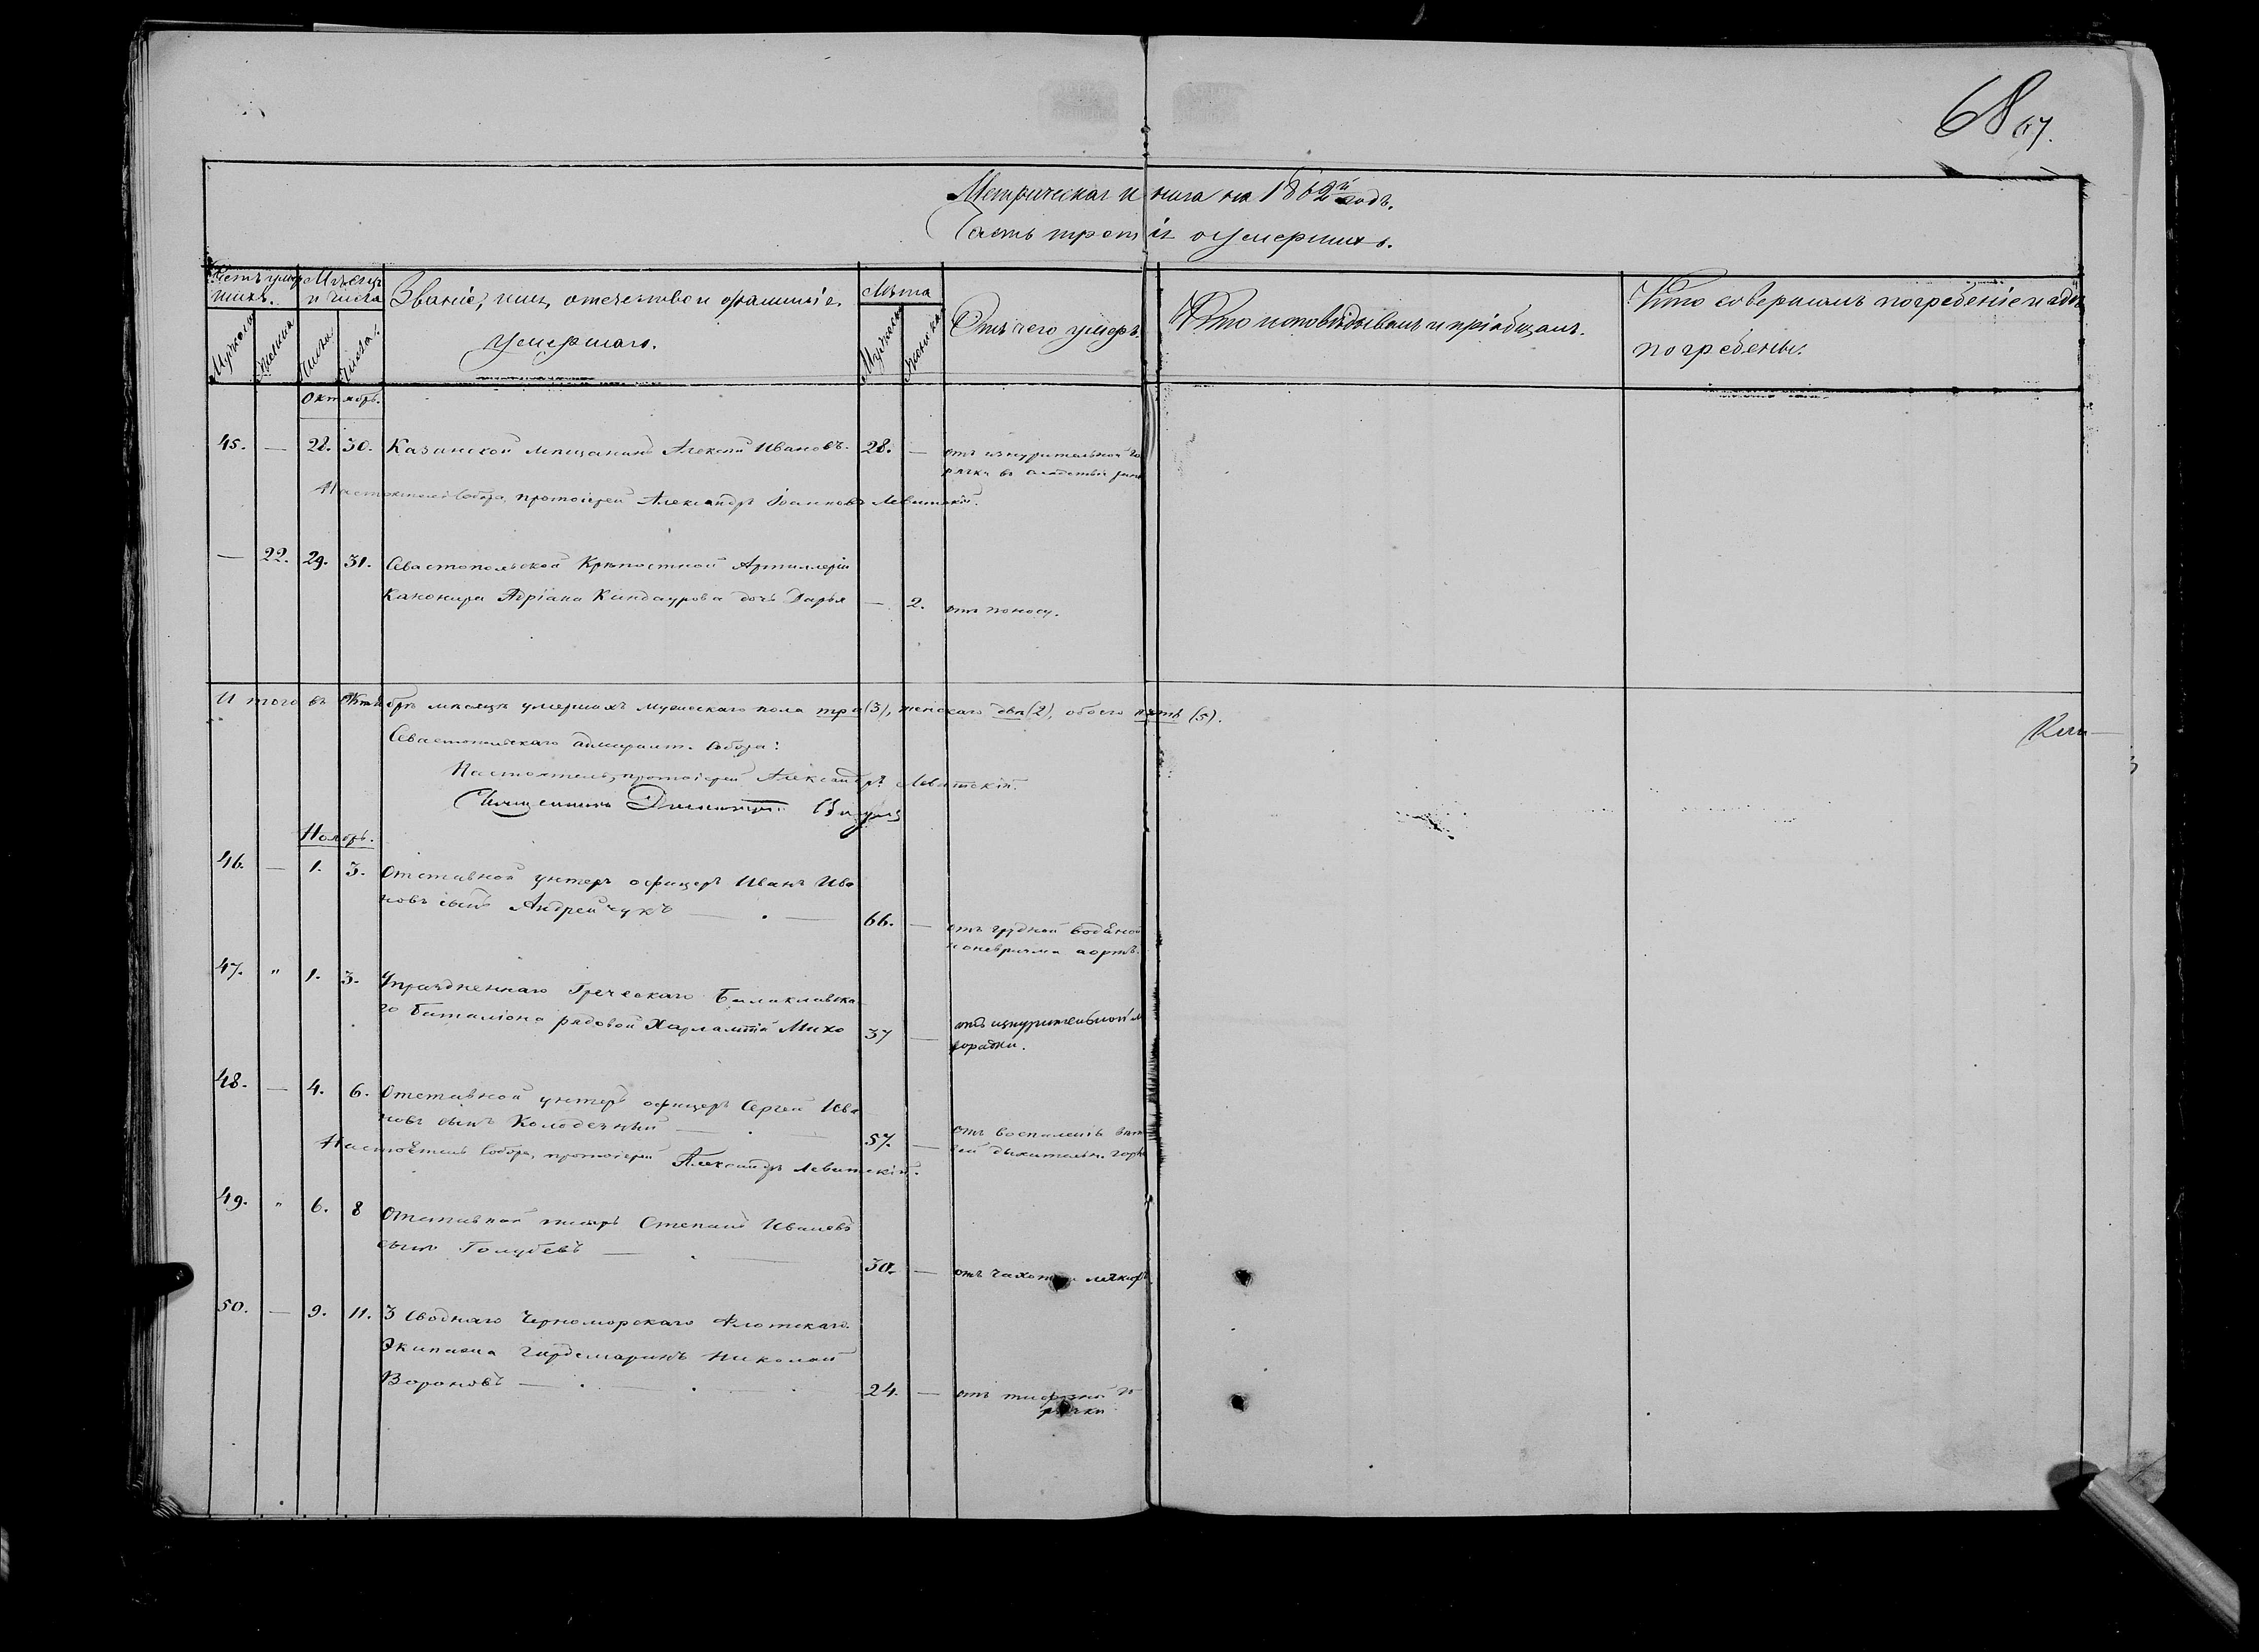 68 67.
Метрическая книга на 1862й годъ.
Часть третія о умершихъ.
Счетъ умер
шихъ.
Мѣсяцъ
и числа
Званіе, имя, отечество и фамиліе
умершаго.
Лѣта
Отъ чего умеръ.
Кто исповѣдывалъ и пріобщалъ.
Кто совершалъ погребеніе и гдѣ
погребены.
Мужеска Женска Числа Числа. Мужеска Женска
Октябрь.
45. — 28. 30. Казанской мѣщанинъ Алексѣй Ивановъ. 28. — отъ изнурительной го
рячки въ слѣдствіе
Настоятель Собора, протоіерей Александръ Іоанновъ Левитскій.
— 22. 29. 31. Севастопольской Крѣпостной Артиллеріи
Канонира Адріана Киндаурова дочь Дарья — 2. отъ поносу.
И того въ Октябрѣ мѣсяцѣ умершихъ мужескаго пола три (3), женскаго двѣ (2), обоего пять (5).
Севастопольскаго адмиралт. Собора:
Настоятель, протоіерей Александръ Левитскій.
Священникъ Димитрій
Ноябрь.
46. — 1. 3. Отставной унтеръ офицеръ Иванъ Ива
новъ сынъ Андрейчукъ — . — 66. — отъ грудной водяной
и оневризма аорты.
47. " 1. 3. Упраздненнаго Греческаго Балаклавска
го Баталіона рядовой Харлампій Михо 37 — отъ изнурительной ли
хорадки.
48. — 4. 6. Отставной унтеръ офицеръ Сергей Ива
новъ сынъ Колодечный — . — 57. — отъ воспаленія вѣт
вей дыхательн. горла
Настоятель Собора, протоіерей Александръ Левитскій.
49. " 6. 8 Отставной писарь Степанъ Ивановъ
сынъ Голубевъ — . — 30. — отъ чахотки легкихъ.
50. — 9. 11. 3 Своднаго Черноморскаго Флотскаго
Экипажа Гардемаринъ Николай
Вороновъ — . — . — . 24. — отъ тифозной го
рячки